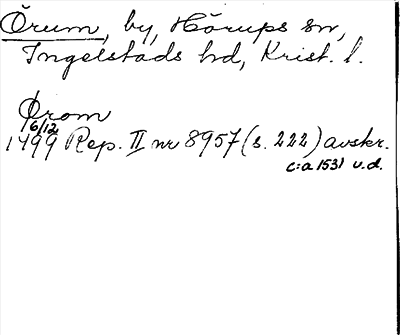 Örum, by, Hörups sn,
Ingelstads hd, Krist. l.
Ørom
16/12
1499 Rep. II nr 8957 (s. 222) avskr.
c:a 1531 u.d.